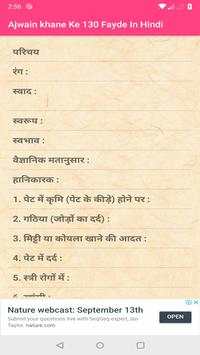 2:56
Ajwain khane Ke 130 Fayde In Hindi
परिचय
रंग :
स्वाद :
स्वरूप :
स्वभाव :
वैज्ञानिक मतानुसार :
हानिकारक :
1. पेट में कृमि (पेट के कीड़े) होने पर :
2. गठिया (जोड़ों का दर्द) :
3. मिट्टी या कोयला खाने की आदत :
4. पेट में दर्द :
5. स्त्री रोगों में :
Nature webcast: September 13th
OPEN
nature.com